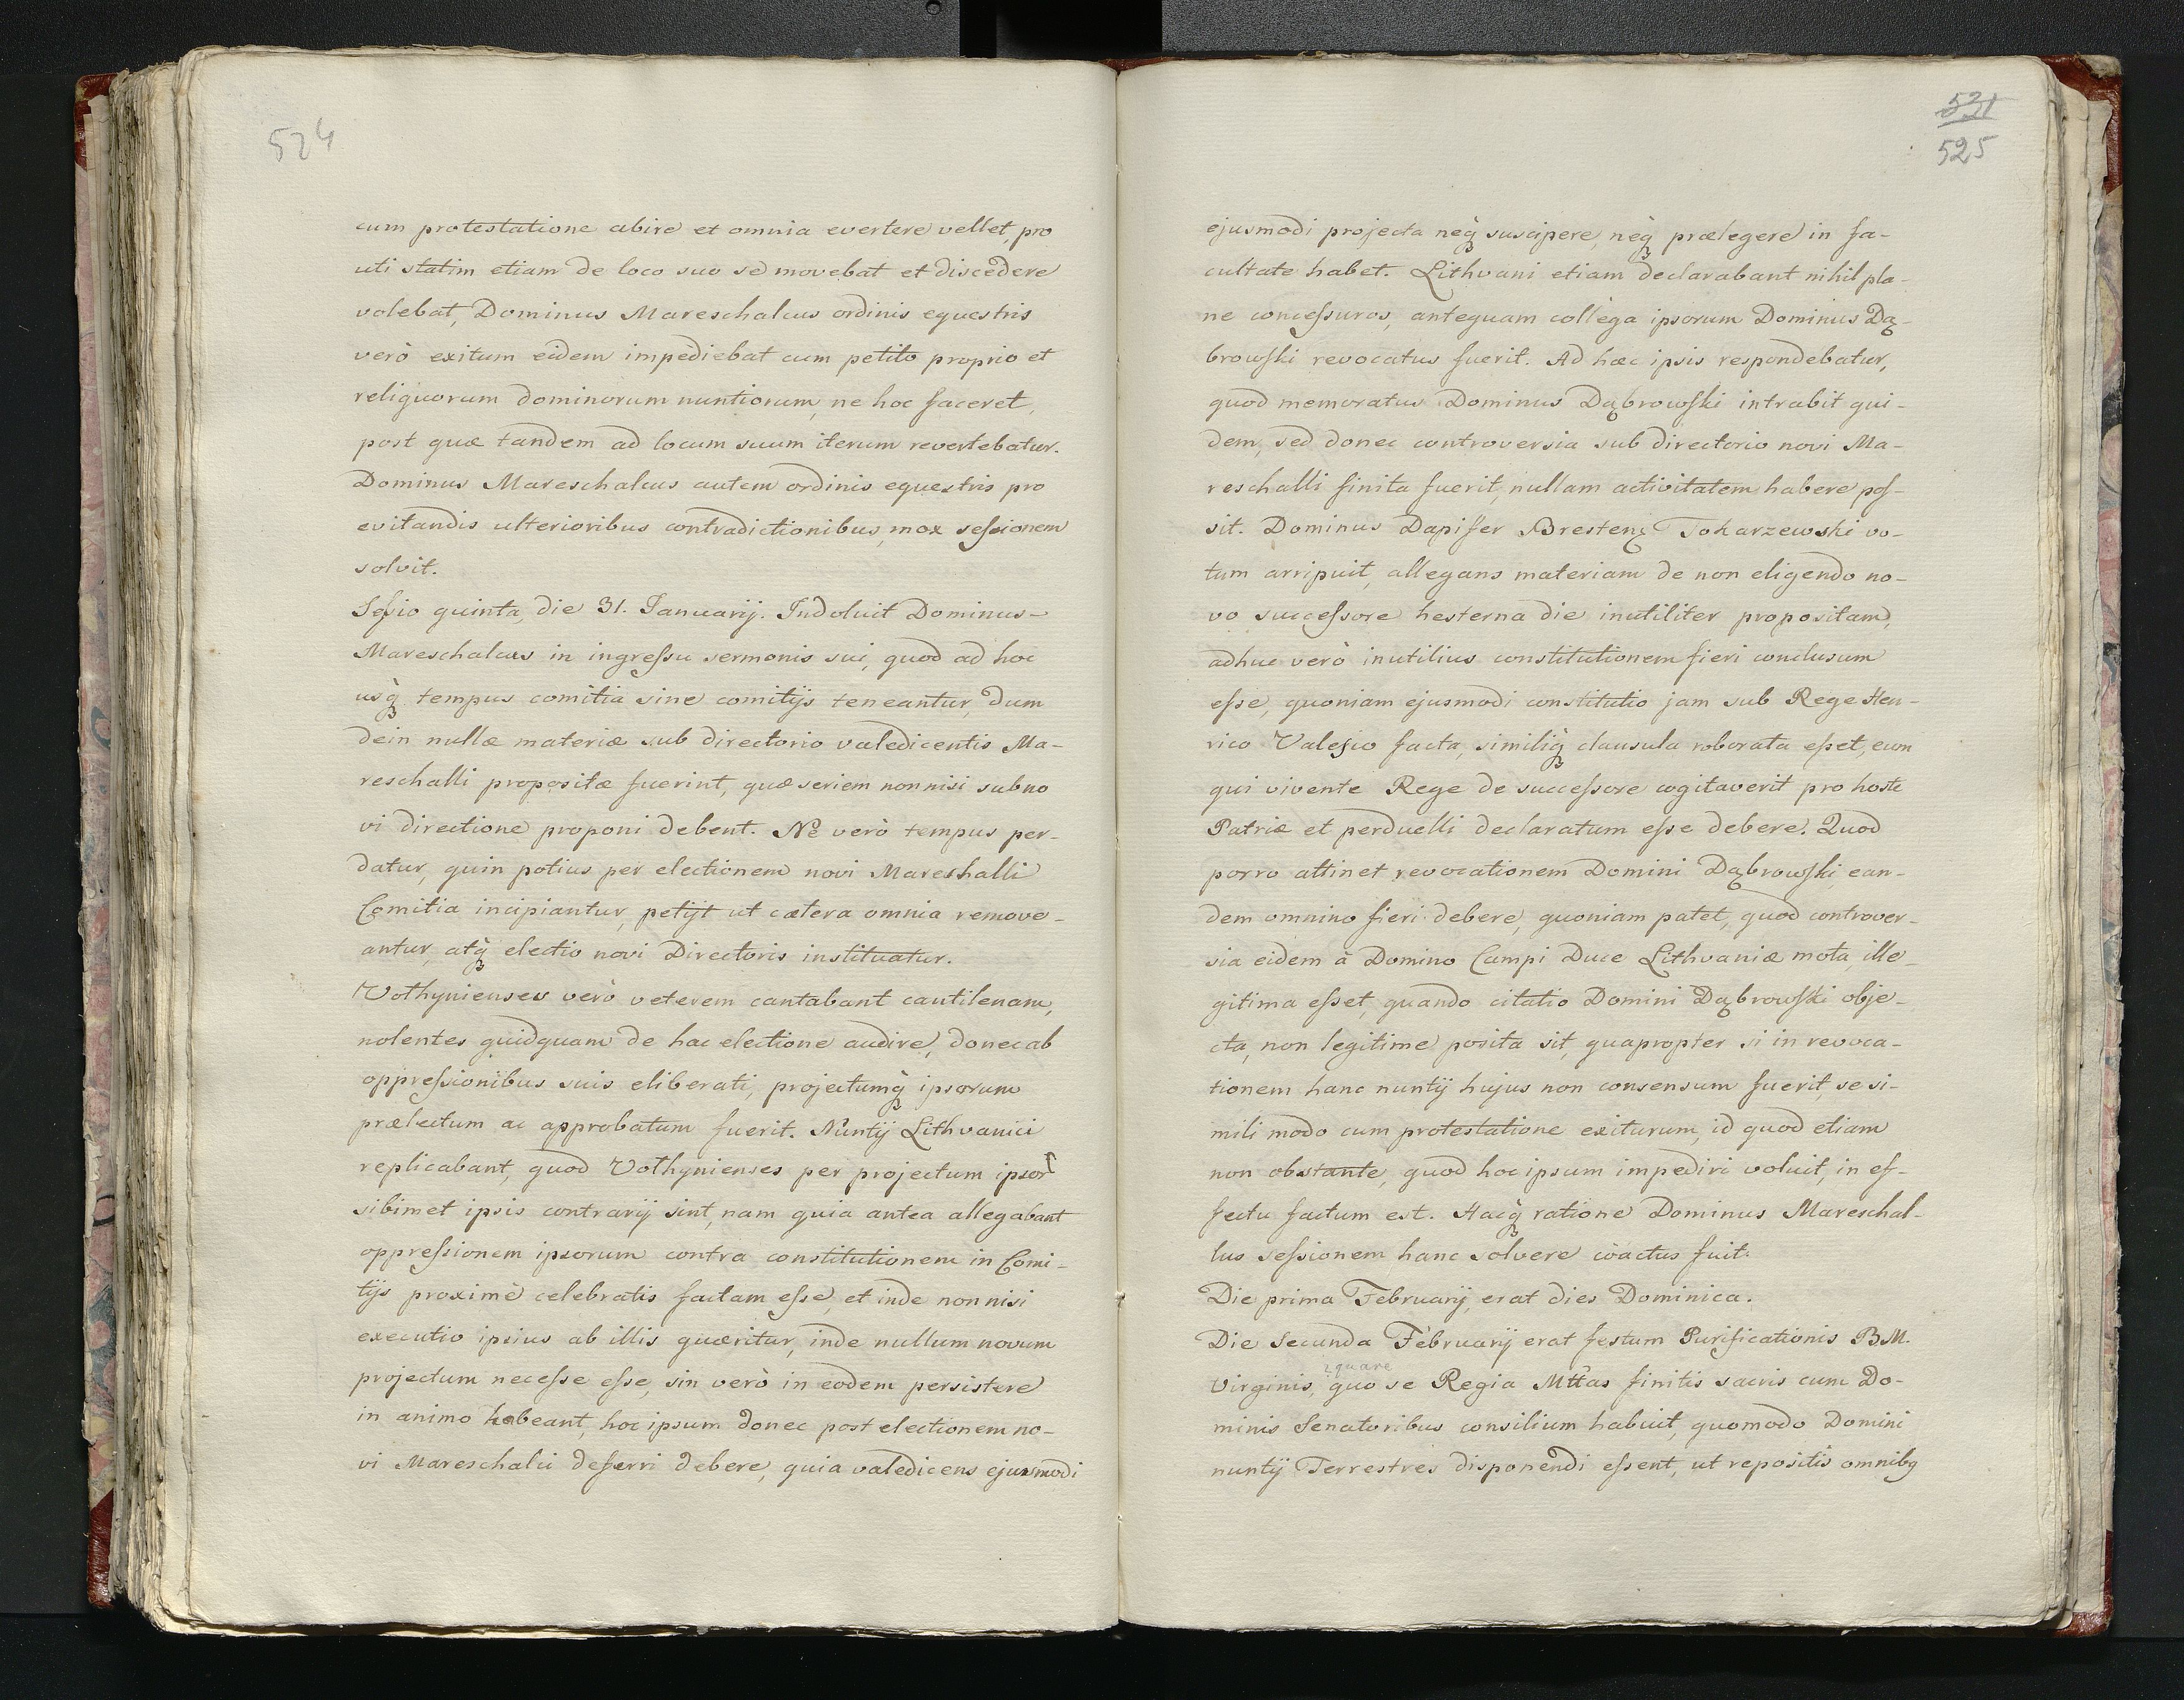 524
cum protestatione abire et omnia evertere vellet, pro
uti statim etiam de loco suo se movebat et discedere
volebat, Dominus Mareschalcus ordinis equestris
verò exitum eidem impediebat cum petito proprio et
reliquorum dominorum nuntiorum, ne hoc faceret,
post quæ tandem ad locum suum iterum revertebatur.
Dominus Mareschalcus autem ordinis equestris pro
evitandis ulterioribus contradictionibus, mox sessionem
solvit.
Sessio quinta, die 31. Januarij. Indoluit Dominus-
Mareschalcus in ingressu sermonis sui, quod ad hoc
usq̀ꝫ tempus comitia sine comitijs teneantur, dum
dein nullæ materiæ sub directorio valedicentis Ma-
reschalli propositæ fuerint, quæ seriem nonnisi sub no
vi directione proponi debent. Ne verò tempus per-
datur, quin potius per electionem novi Mareshalli
Comitia incipiantur, petijt ut cætera omnia remove-
antur, atq̀ꝫ electio novi Directoris instituatur.
Vothynienses verò veterem cantabant cantilenam,
nolentes quidquam de hac electione audire, donec ab
oppressionibus suis eliberati, projectumq̀ꝫ ipsorum
prælectum ac approbatum fuerit. Nuntij Lithvanici
replicabant, quod Vothynienses per projectum ipsor
sibimet ipsis contrarij sint, nam quia antea allegabant
oppressionem ipsorum contra constitutionem in Comi-
tijs proximè celebratis factam esse, et inde nonnisi
executio ipsius ab illis quæritur, inde nullum novum
projectum necesse esse, sin verò in eodem persistere
in animo habeant, hoc ipsum donec post electionem no-
vi Mareschalci deferri debere, quia valedicens ejusmodi
531
525
ejusmodi projecta neq̀ꝫ suscipere, neq̀ꝫ prælegere in fa-
cultate habet. Lithvani etiam declarabant nihil pla-
ne concessuros, antequam collega ipsorum Dominus Dą-
browski revocatus fuerit. Ad hæc ipsis respondebatur,
quod memoratus Dominus Dąbrowski intrabit qui-
dem, sed donec controversia sub directorio novi Ma-
reschalli finita fuerit, nullam activitatem habere pos-
sit. Dominus Dapifer Brestenꝫ Tokarzewski vo-
tum arripuit, allegans materiam de non eligendo no-
vo successore hesterna die inutiliter propositam,
adhuc verò inutilius constitutionem fieri conclusum
esse, quoniam ejusmodi constitutio jam sub Rege Hen-
rico Valesio facta, similiq̀ꝫ clausula roborata esset, eum
qui vivente Rege de successore cogitaverit pro hoste
Patriæ et perduelli declaratum esse debere. Quod
porro attinet revocationem Domini Dąbrowski, ean-
dem omnino fieri debere, quoniam patet, quod controver-
sia eidem à Domino Campi Duce Lithvaniæ mota, ille-
gitima esset, quando citatio Domini Dąbrowski obje-
cta, non legitime posita sit, quapropter si in revoca-
tionem hanc nuntij hujus non consensum fuerit, se si-
mili modo cum protestatione exiturum, id quod etiam
non obstante, quod hoc ipsum impediri voluit, in ef-
fectu factum est. Hacq̀ꝫ ratione Dominus Mareschal-
lus sessionem hanc solvere coactus fuit.
Die prima Februarij, erat dies Dominica.
Die Secunda Februarij erat festum Purificationis B.M.
quare
Virginis, quo se Regia Mttas finitis sacris cum Do-
minis Senatoribus consilium habuit, quomodo Domini
nuntij Terrestres disponendi essent, ut repositis omnibꝫ